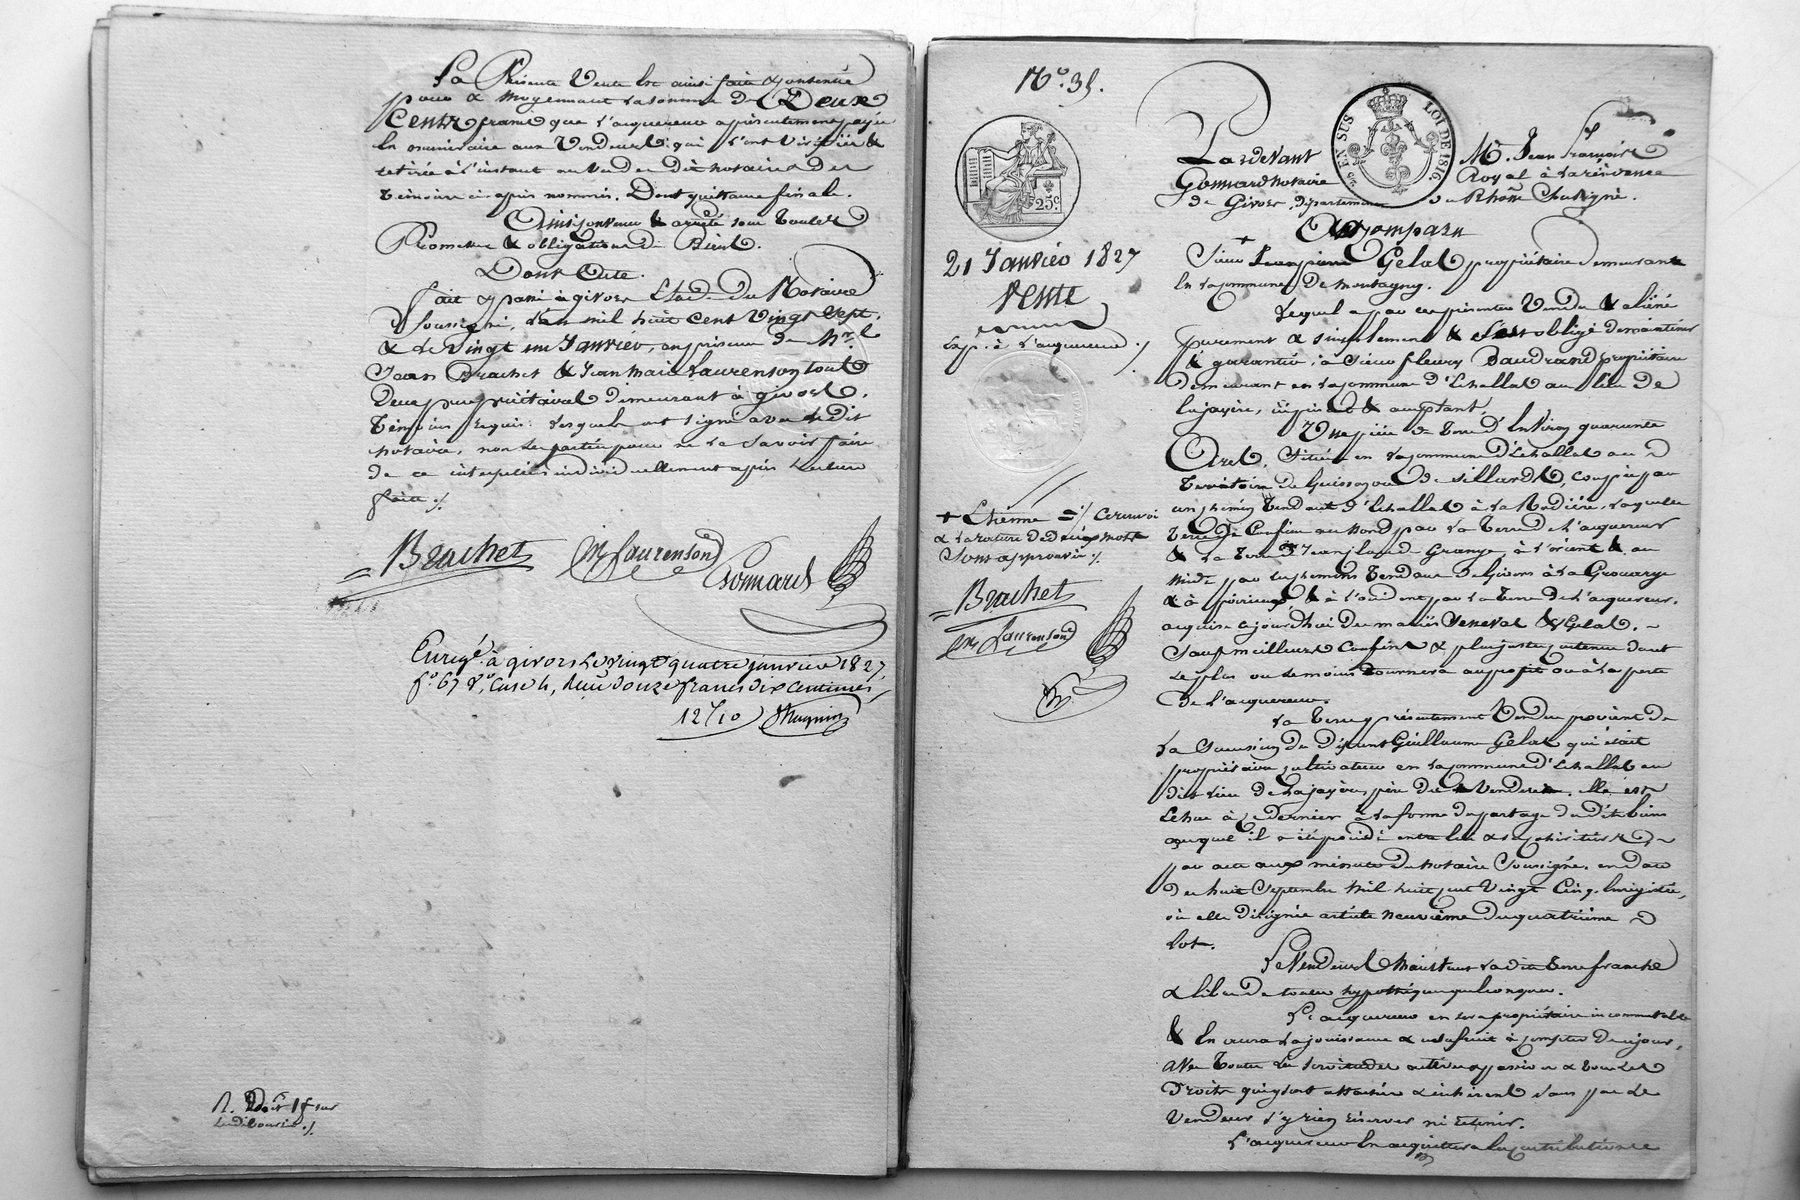 La Présente Vente est ainsi faite & consentie
pour & moyennant la somme de Deux
Cents francs que l'acquereur a présentement payée
en numéraire aux Vendeurs qui l'ont vérifiée &
retirée à l'instant au vu des dit notaire & des
témoins ci après nommés. Dont quittance finale.
Ainsi convenu & arrêté sous toutes
Promesses & obligations de Droit.
Dont Acte.
fait & passé à givors Etude du Notaire
Soussigné, l'an mil huit cent Vingt Sept,
& le Vingt un Janvier, en présence de Mrs
Jean Brachet & Jean Marie Laurenson tous
Deux propriétaires demeurant à givors,
Témoins requis; lesquels ont signé avec le dit
notaire, non les parties pour ne le savoir faire
de ce interpellées individuellement après lecture
faite ./.
Brachet Laurenson Gonnard
Enregé. à givors le vingt quatre janvier 1827,
fo. 67 Vo, Case 4, Reçu douze francs dix centimes
12f10
No. 35.
EN SUS LOI DE 1816.
25c
Pardevant Me. Jean François
Gonnard notaire Royal à la résidence
de Givors, département du Rhône Soussigné.
A Comparu
21 Janvier 1827
Vente
Exp. à l'acquereur ./.
Sieur Jean pierre + Gelas propriétaire demeurant
en la commune de montagny.
Lequel a par ces présentes Vendu & aliéné
purement & simplement & s'est obligé de maintenir
& garantir, à Sieur fleury Baudrand propriétaire
demeurant en la commune d'Echallas au lieu de
Lajayère, ici présent & acceptant,
Une pièce de terre d'environ quarante
Ares, Située en la commune d'Echallas au
Territoire de
un chemin tendant d'Echallas à la Rodière, laquelle
terre se Confine au Nord par la terre de l'acquereur
& la terre de Jean Claude Grange, à l'orient & au
midi par les chemins tendant de Givors à la
& à & à l'occident par la terre de l'acquereur,
acquise cejourd'hui des mariés Venevat & Gelas.
Sauf meilleurs Confins & plus juste contenue dont
Le plus ou le moins tournera au profit ou à la perte
de l'acquereur.
+ Etienne =/. Ce renvoi
& la rature de deux mots
Sont approuvés ./.
Brachet
Laurenson
La Terre présentement Vendue provient de
La Succession de Défunt Guillaume Gelas qui était
propriétaire cultivateur en la commune d'Echallas au
dit lieu de Lajayère, père du Vendeur. Elle est
échue à ce Dernier à la forme du partage des dits biens
auquel il a été procédé entre lui & ses cohéritiers
par acte aux minutes du notaire Soussigné, en date
du huit Septembre mil huit cent Vingt Cinq, Enregistré,
où elle désignée article neuvième du quatrième
lot.
Le Vendeur Maintient la dite terre franche
& libre de toutes hypothèques quelconques.
L'acquereur en sera propriétaire incommutable
& En aura la jouissance & usufruit à compter de ce jour,
avec toutes les servitudes actives & passives & tous les
Droits qui y sont attachés & inhérents sans par le
Vendeur s'y rien réserver ni retenir.
L'acquereur En acquittera les contributions